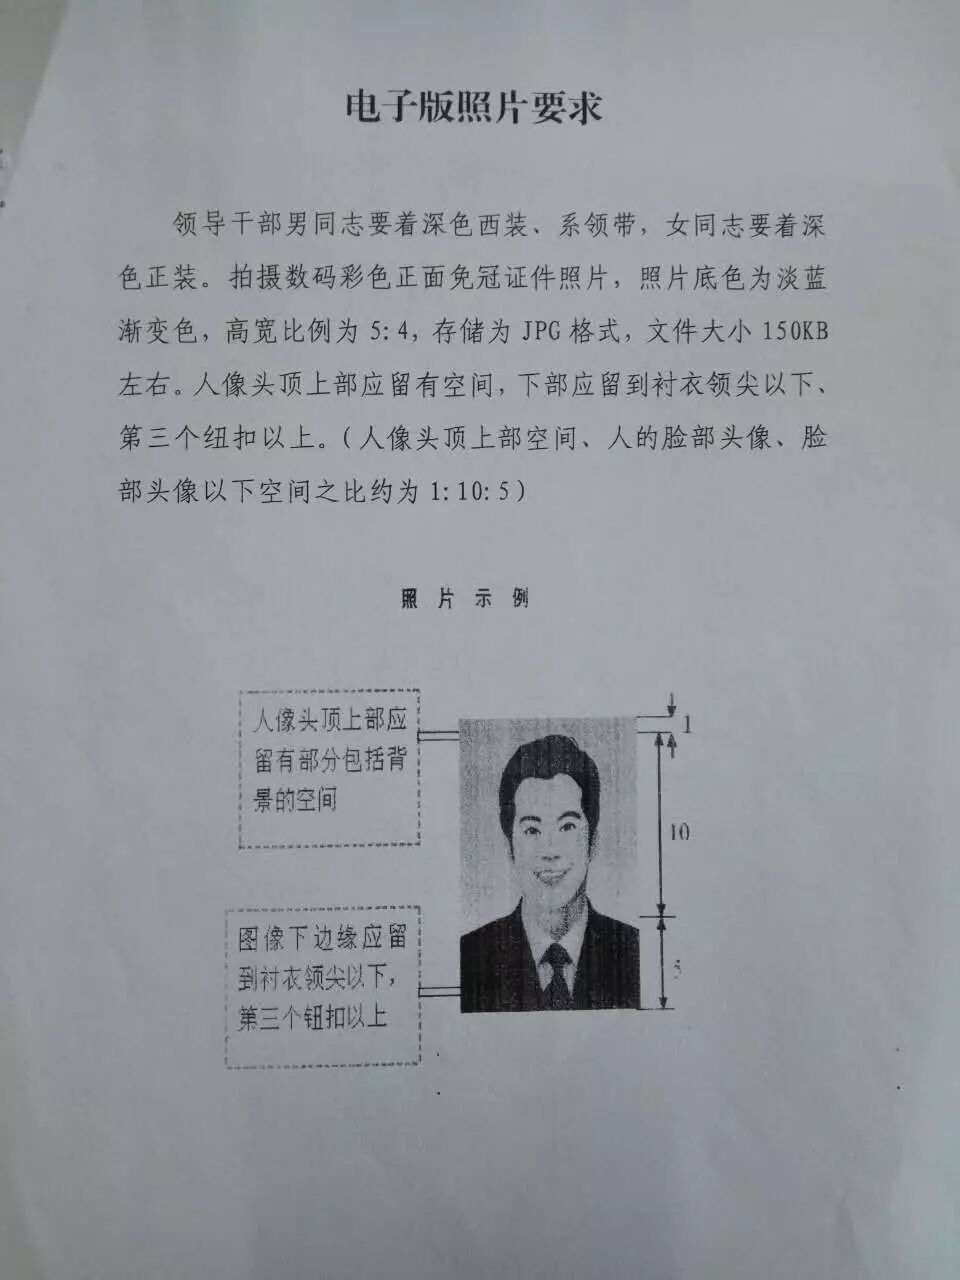 电子版照片要求
领导干部男同志要着深色西装、系领带，女同志要着深
色正装。拍摄数码彩色正面免冠证件照片，照片底色为淡蓝
渐变色，高宽比例为5:4，存储为JPG格式，文件大小150KB
左右。人像头顶上部应留有空间，下部应留到衬衣领尖以下、
第三个纽扣以上。（人像头顶上部空间、人的脸部头像、脸
部头像以下空间之比约为1:10:5）
照片示例
人像头顶上部应
留有部分包括背
景的空间
1
10
图像下边缘应留
到衬衣领尖以下，
第三个钮扣以上
5